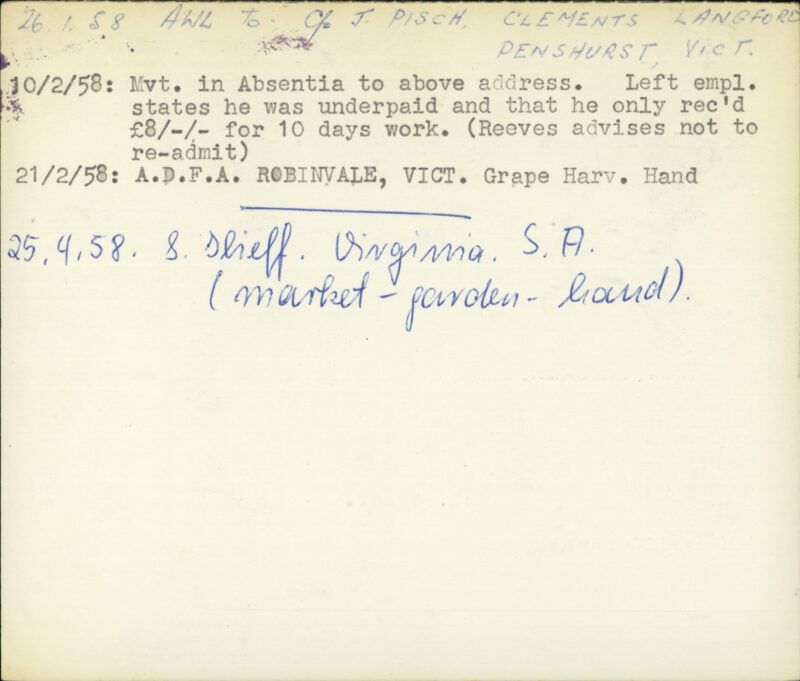 26.1.58 AWL to c/o J. PISCH, CLEMENTS LANGFORD
PENSHURST, VICT.
10/2/58: Mvt. in Absentia to above address. Left empl.
states he was underpaid and that he only rec'd
£8/-/- for 10 days work. (Reeves advises not to
re-admit)
21/2/58: A.D.F.A. ROBINVALE, VICT. Grape Harv. Hand
25.4.58. S. Slieff. Virginia. S.A.
(market-garden-hand).